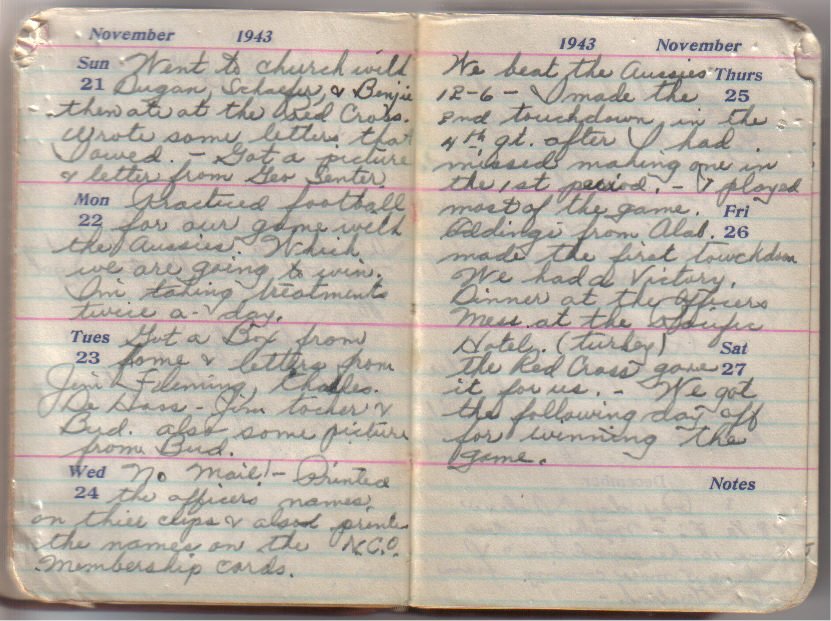 November 1943
Sun Went to church with
21 Dugan, Schaefer, & Benjie
then ate at the Red Cross.
Wrote some letters that
I owed. - Got a picture
& letter from Geo Senter.
Mon Practiced football
22 for our game with
the Aussies. Which
we are going to win.
I'm taking treatments
twice a day.
Tues Got a Box from
23 home & letters from
Jim Fleming, Charles.
De Haas - Jim &
Bud. also some picture
from Bud.
Wed No Mail! - Printed
24 the officers names
on thier cups & also printed
the names on the N.C.O.
Membership cards.
1943 November
We beat the Aussies Thurs
12-6 - I made the 25
2nd touchdown in the
4th qt. after I had
missed making one in
the 1st period. - I played
most of the game. Fri
from Alab. 26
made the first touchdown
We had a Victory.
Dinner at the Officers
Mess at the Pacific
Hotel. (turkey) Sat
the Red Cross gave 27
it for us. - We got
the following day off
for winning the
game.
Notes